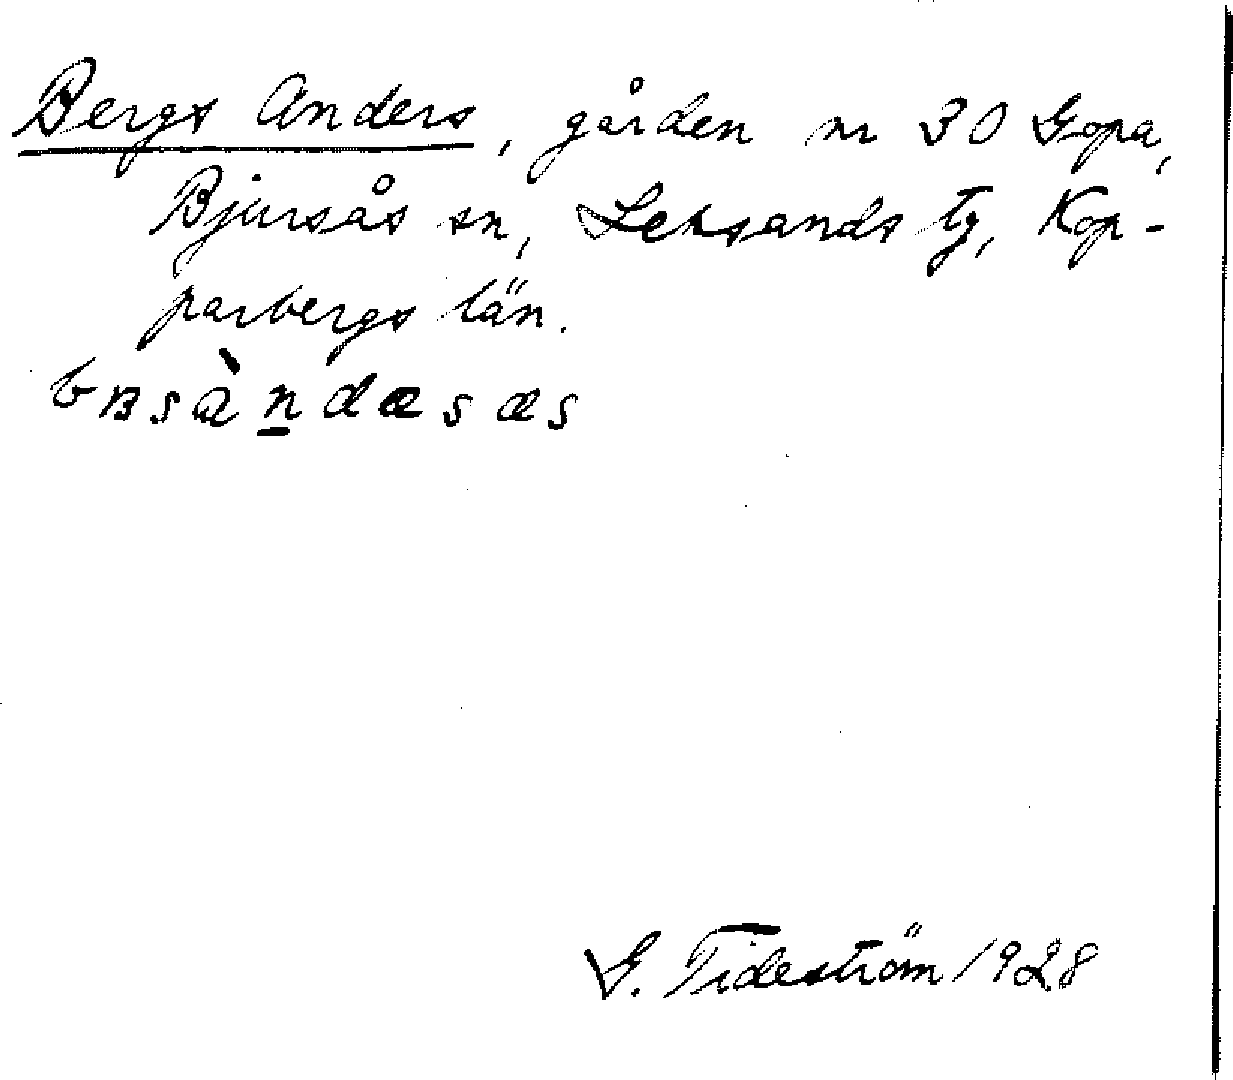 Bergs Anders, gården nr 30 Gopa,
Bjursås sn, Leksands tg, Kop-
parbergs län.
G. Tideström 1928